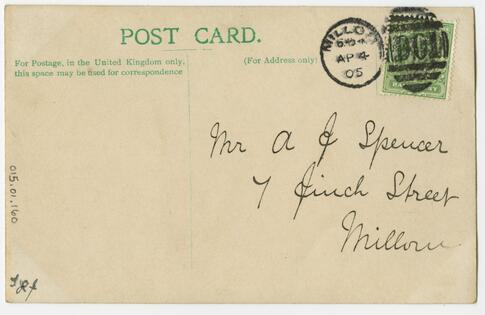 POST CARD.
For Postage, in the United Kingdom only,
this space may be used for correspondence
(For Address only)
MILLOM
AP 4
05
Mr A J Spencer
7 Finch Street
Millom
015.01.160